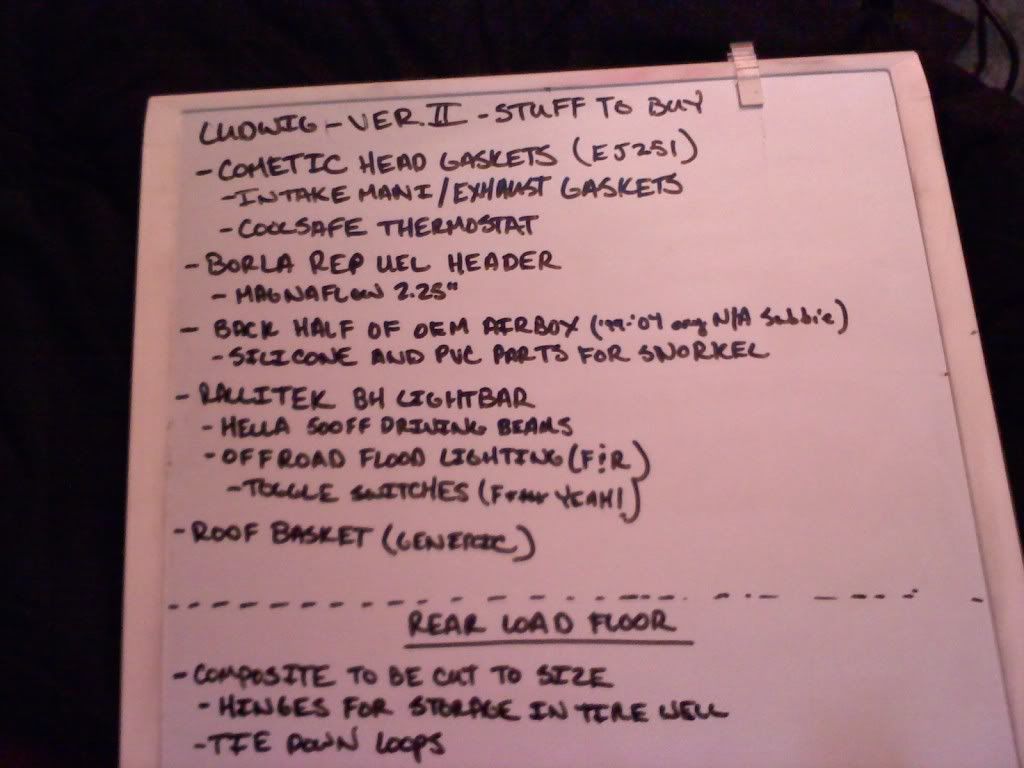 LUDWIG - VER II - STUFF TO BUY
- COMETIC HEAD GASKETS (EJ251)
- INTAKE MANI/EXHAUST GASKETS
- COOLSAFE THERMOSTAT
- BORLA REP UEL HEADER
- MAGNAFLOW 2.25"
- BACK HALF OF OEM AIRBOX ('99-'04 any N/A Subbie)
- SILICONE AND PVC PARTS FOR SNORKEL
- RALLITEK BH LIGHTBAR
- HELLA 500FF DRIVING BEAMS
- OFFROAD FLOOD LIGHTING (F:R)
- TOGGLE SWITCHES (YEAH!)
- ROOF BASKET (GENERIC)
REAR LOAD FLOOR
- COMPOSITE TO BE CUT TO SIZE
- HINGES FOR STORAGE IN TIRE WELL
- TIE DOWN LOOPS